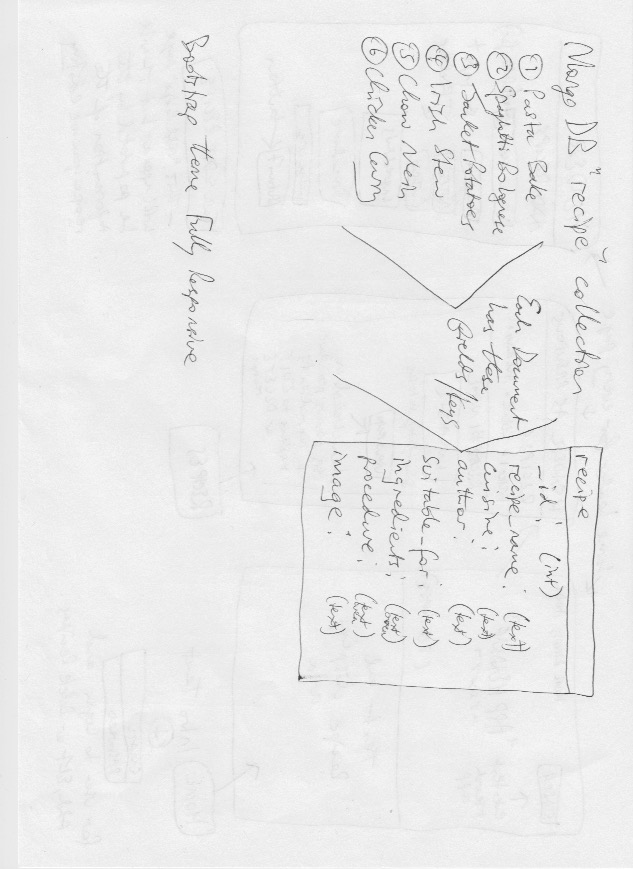 Mongo DB "recipe" collection
① Pasta Bake
② Spaghetti Bolognese
③ Jacket Potatoes
④ Irish Stew
⑤ Chow Mein
⑥ Chicken Curry
Each Document
has these
fields/keys
recipe
_id: (int)
recipe_name: (text)
cuisine: (text)
author: (text)
suitable_for: (text)
ingredients: (text area)
procedure: (text area)
image: (text)
Bootstrap theme Fully Responsive